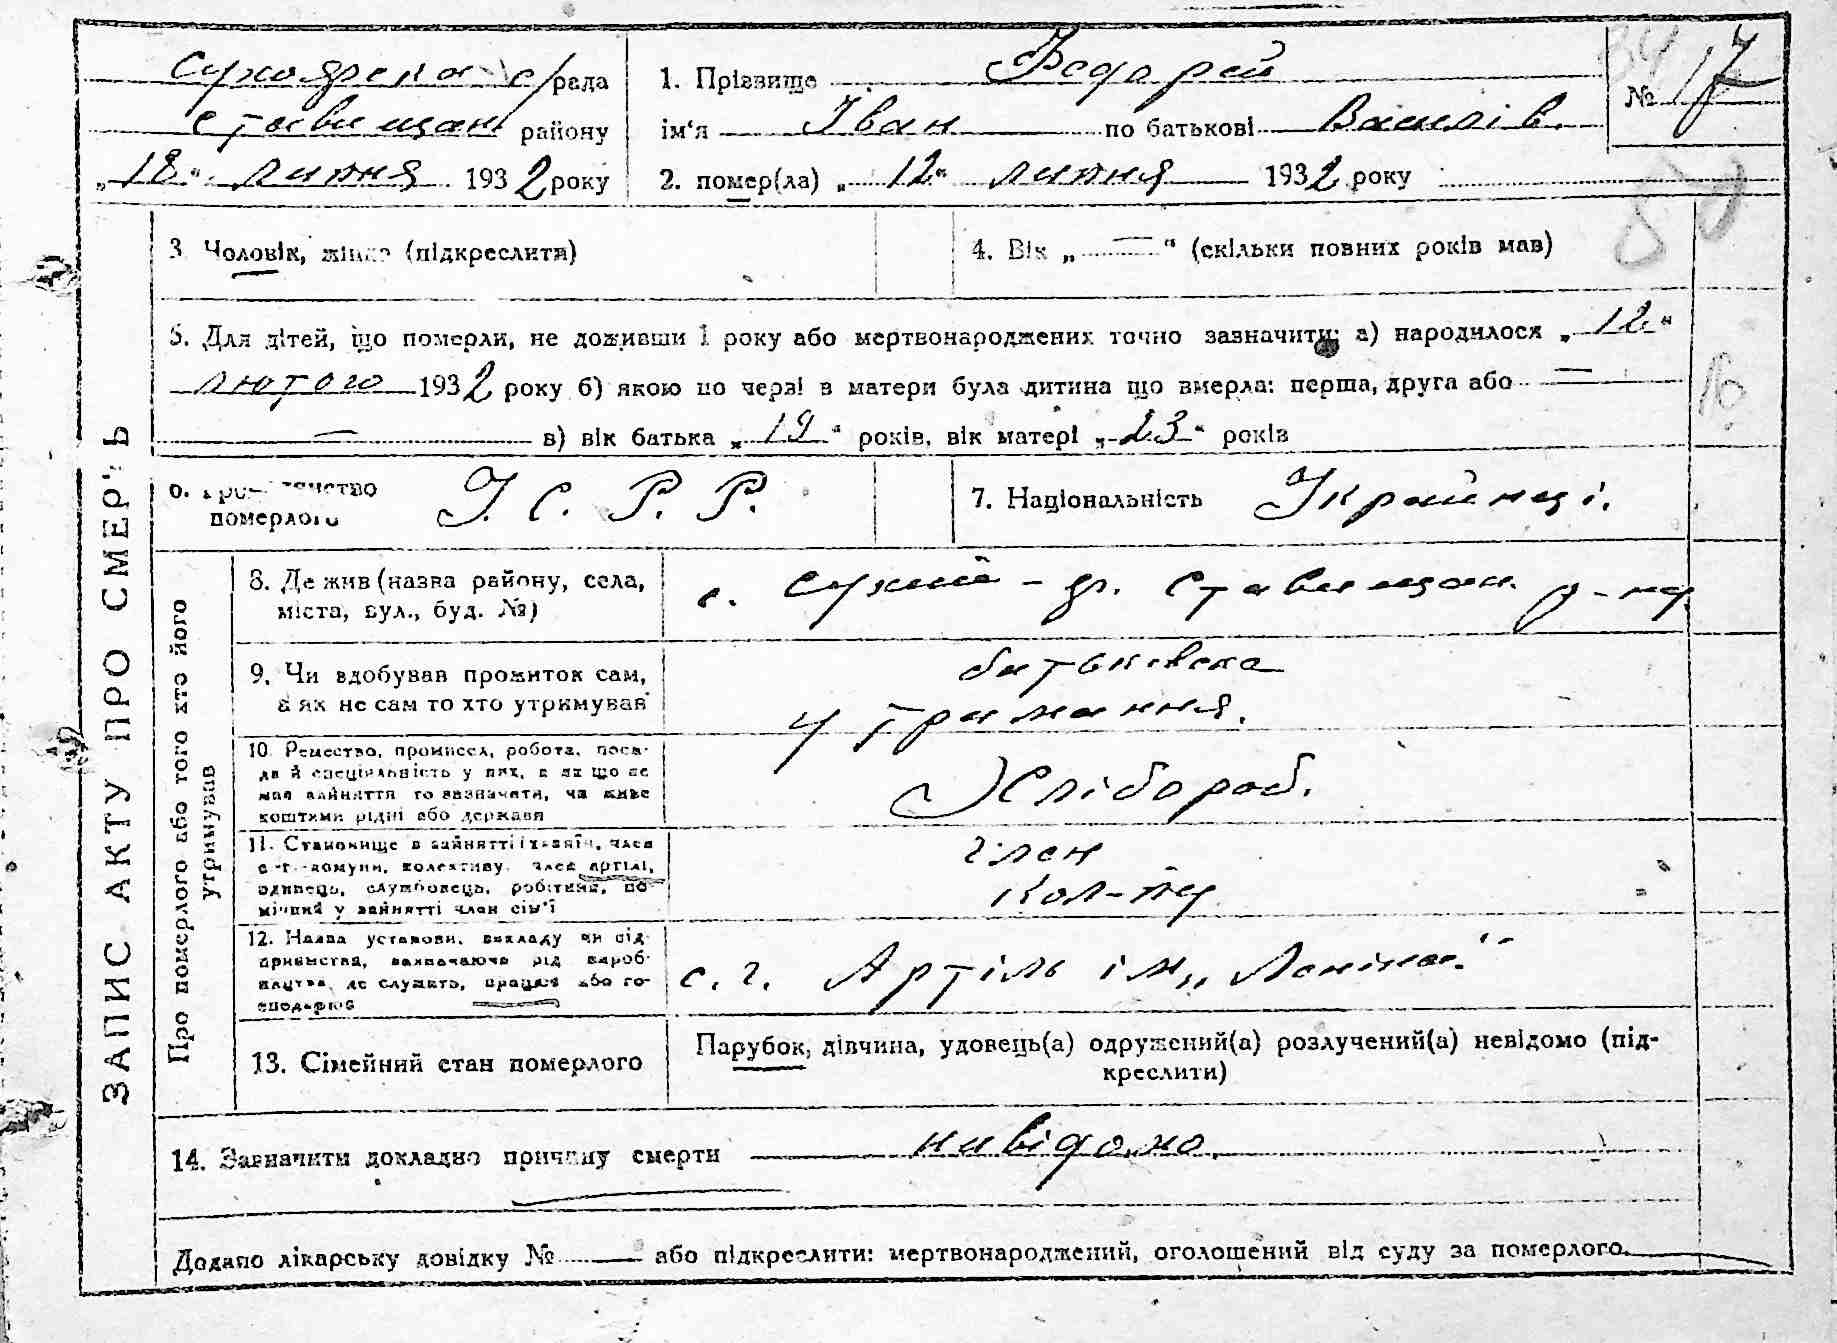 Сухоярска с/рада
Ставищан району
„18“ липня 1932 року
1. Прізвище Федорей
ім‘я Іван по батькові Василів.
2. помер(ла) „12“ липня 1932 року
№ 17
ЗАПИС АКТУ ПРО СМЕРТЬ
3. Чоловік, жінка (підкреслити)
4. Вік „—“ (скільки повних років мав)
5. Для дітей, що померли, не доживши 1 року або мертвонароджених точно зазначити: а) народилося „12“
лютого 1932 року б) якою по черзі в матери була дитина що вмерла: перша, друга або —
— в) вік батька „19“ років, вік матері „23“ років
6. Громадянство
померлого
У. С. Р. Р.
7. Національність Українці.
Про померлого або того хто його
утримував
8. Де жив (назва району, села,
міста, вул., буд. №)
с. Сухий-Яр. Ставищан. р-ну
9. Чи вдобував прожиток сам,
а як не сам то хто утримував
батьківска
утримання.
10. Ремество, промисел, робота, поса-
да й спеціяльність у них, а як що не
мав зайняття то зазначити, чи живе
коштами рідні або держави
Хлібороб.
11. Становище в зайнятті (хазяїн, член
с.-г. комуни, колективу, член артілі,
одинець, службовець, робітник, по
мічний у зайнятті член сім‘ї
член
Кол-ву
12. Назва установи, викладу чи під-
приємства, зазначаючи рід вироб-
ництва, де служить, працює або го-
сподарює
с. г. Артіль ім „Леніна“
13. Сімейний стан померлого
Парубок, дівчина, удовець(а) одружений(а) розлучений(а) невідомо (під-
креслити)
14. Зазначити докладно причину смерти невідомо.
Додано лікарську довідку № — або підкреслити: мертвонароджений, оголошений від суду за померлого.